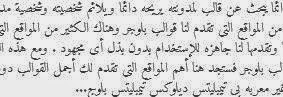 دائما يبحث عن قالب لمدونته يريحه دائما ويلائم شخصيته وشخصية مد
من المواقع التى تقدم لنا قوالب بلوجر وهناك الكثير من المواقع التى
وتقدمها لنا جاهزه للإستخدام بدون بذل أى مجهود . ومع هذه ال
لب بلوجر فستجد هنا أهم المواقع التى تقدم لك أجمل القوالب دو
غير معربه لى تيمبليتس ديلوكس تيمبليتس بلوج...